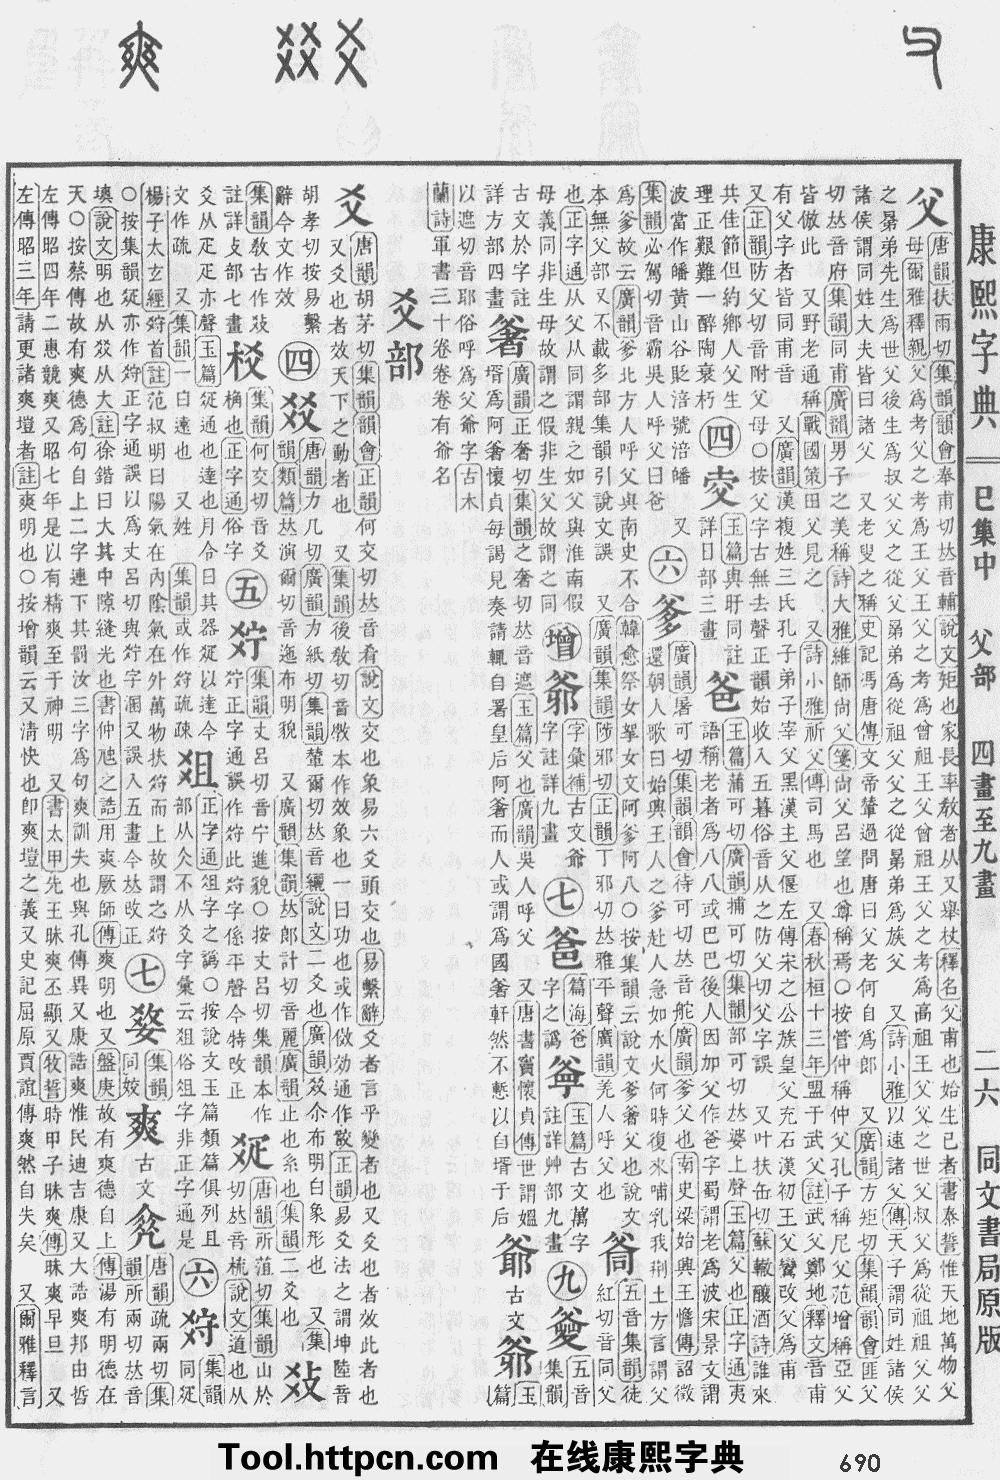 康熙字典 巳集中 父部 四畫至九畫 二六 同文書局原版
父 唐韻扶雨切集韻韻會奉甫切𠀤音輔說文矩也家長率敎者从又舉杖釋名父甫也始生己者書泰誓惟天地萬物父
母爾雅釋親父爲考父之考爲王父王父之考爲曾祖王父曾祖王父之考爲高祖王父父之世父叔父爲從祖祖父父
之晜弟先生爲世父後生爲叔父父之從父晜弟爲從祖父父之從晜弟爲族父 又詩小雅以速諸父傳天子謂同姓諸侯
諸侯謂同姓大夫皆曰諸父 又老叟之稱史記馮唐傳文帝輦過問唐曰父老何自爲郎 又廣韻方矩切集韻韻會匪父
切𠀤音府集韻同甫廣韻男子之美稱詩大雅維師尙父箋尙父呂望也尊稱焉○按管仲稱仲父孔子稱尼父范增稱亞父
皆倣此 又野老通稱戰國策田父見之 又詩小雅祈父傳司馬也 又春秋桓十三年盟于武父註武父鄭地釋文音甫
有父字者皆同甫音 又廣韻漢複姓三氏孔子弟子宰父黑漢主父偃左傳宋之公族皇父充石漢初王父鸞改父爲甫
又正韻防父切音附父母○按父字古無去聲正韻始收入五暮俗音从之防父切父字誤 又叶扶缶切蘇轍釀酒詩誰來
共佳節但約鄕人父生
理正艱難一醉陶衰朽 四 㕛 玉篇與盱同註 詳日部三畫 爸 玉篇蒲可切廣韻捕可切集韻部可切𠀤婆上聲玉篇父也正字通夷
語稱老者爲八八或巴巴後人因加父作爸字蜀謂老爲波宋景文謂
波當作皤黃山谷貶涪號涪皤 又
集韻必駕切音霸吳人呼父曰爸 六 爹 廣韻屠可切集韻韻會待可切𠀤音舵廣韻爹父也南史梁始興王憺傳詔徵
還朝人歌曰始興王人之爹赴人急如水火何時復來哺乳我荆土方言謂父
爲爹故云廣韻爹北方人呼父與南史不合韓愈祭女挐女文阿爹阿八○按集韻云說文爹奢父也說文
本無父部又不載多部集韻引說文誤 又廣韻集韻陟邪切正韻丁邪切𠀤雅平聲廣韻羌人呼父也
也正字通从父从同謂親之如父與淮南假
母義同非生母故謂之假非生父故謂之同
古文於字註
詳方部四畫 奓 廣韻正奢切集韻之奢切𠀤音遮玉篇父也廣韻吳人呼父 又唐書竇懷貞傳世謂媼
壻爲阿㸙懷貞每謁見奏請輒自署皇后阿㸙而人或謂爲國㸙軒然不慙以自壻于后
以遮切音耶俗呼爲父爺字古木
蘭詩軍書三十卷卷卷有爺名
爻部
爻 唐韻胡茅切集韻韻會正韻何交切𠀤音肴說文交也象易六爻頭交也易繫辭爻者言乎變者也又爻也者效此者也
又爻也者效天下之動者也 又集韻後敎切音斆本作效象也一曰功也或作倣効通作殽正韻易爻法之謂坤陸音
胡孝切按易繫
辭今文作效 四 㸚 唐韻力几切廣韻力紙切集韻輦爾切𠀤音邐說文二爻也廣韻㸚尒布明白象形也 又集
韻類篇𠀤演爾切音迤布明貌 又廣韻集韻𠀤郎計切音麗廣韻止也系也集韻二爻也
集韻敎古作
註詳攴部七畫 集韻何交切音爻
桷也正字通俗字 五 集韻丈呂切音宁進貌○按丈呂切集韻本作
正字通誤作此字係平聲今特改正 唐韻所菹切集韻山於
切𠀤音梳說文通也从
爻从疋疋亦聲玉篇延通也達也月令曰其器延以達今
文作疏 又集韻一曰遠也 又姓 集韻或作疏疎 爼 正字通俎字之譌○按說文玉篇類篇俱列且
部从仌不从爻字彙云爼俗俎字非正字通是 六 集韻
同
楊子太玄經首註范叔明曰陽氣在內陰氣在外萬物扶而上故謂之
○按集韻亦作正字通誤以爲丈呂切與字溷又誤入五畫今𠀤改正 七 集韻
同 爽 古文 唐韻疏兩切集
韻所兩切𠀤音
塽說文明也从㸚从大註徐鍇曰大其中隙縫光也書仲虺之誥用爽厥師傳爽明也又盤庚故有爽德自上傳湯有明德在
天○按蔡傳故有爽德爲句自上二字連下其罰汝三字爲句爽訓失也與孔傳異又康誥爽惟民迪吉康又大誥爽邦由哲
左傳昭四年二惠競爽又昭七年是以有精爽至于神明 又書太甲先王昧爽丕顯又牧誓時甲子昧爽傳昧爽早旦 又
左傳昭三年請更諸爽塏者註爽明也○按增韻云又淸快也卽爽塏之義又史記屈原賈誼傳爽然自失矣 又爾雅釋言
Tool.httpcn.com 在线康熙字典 690